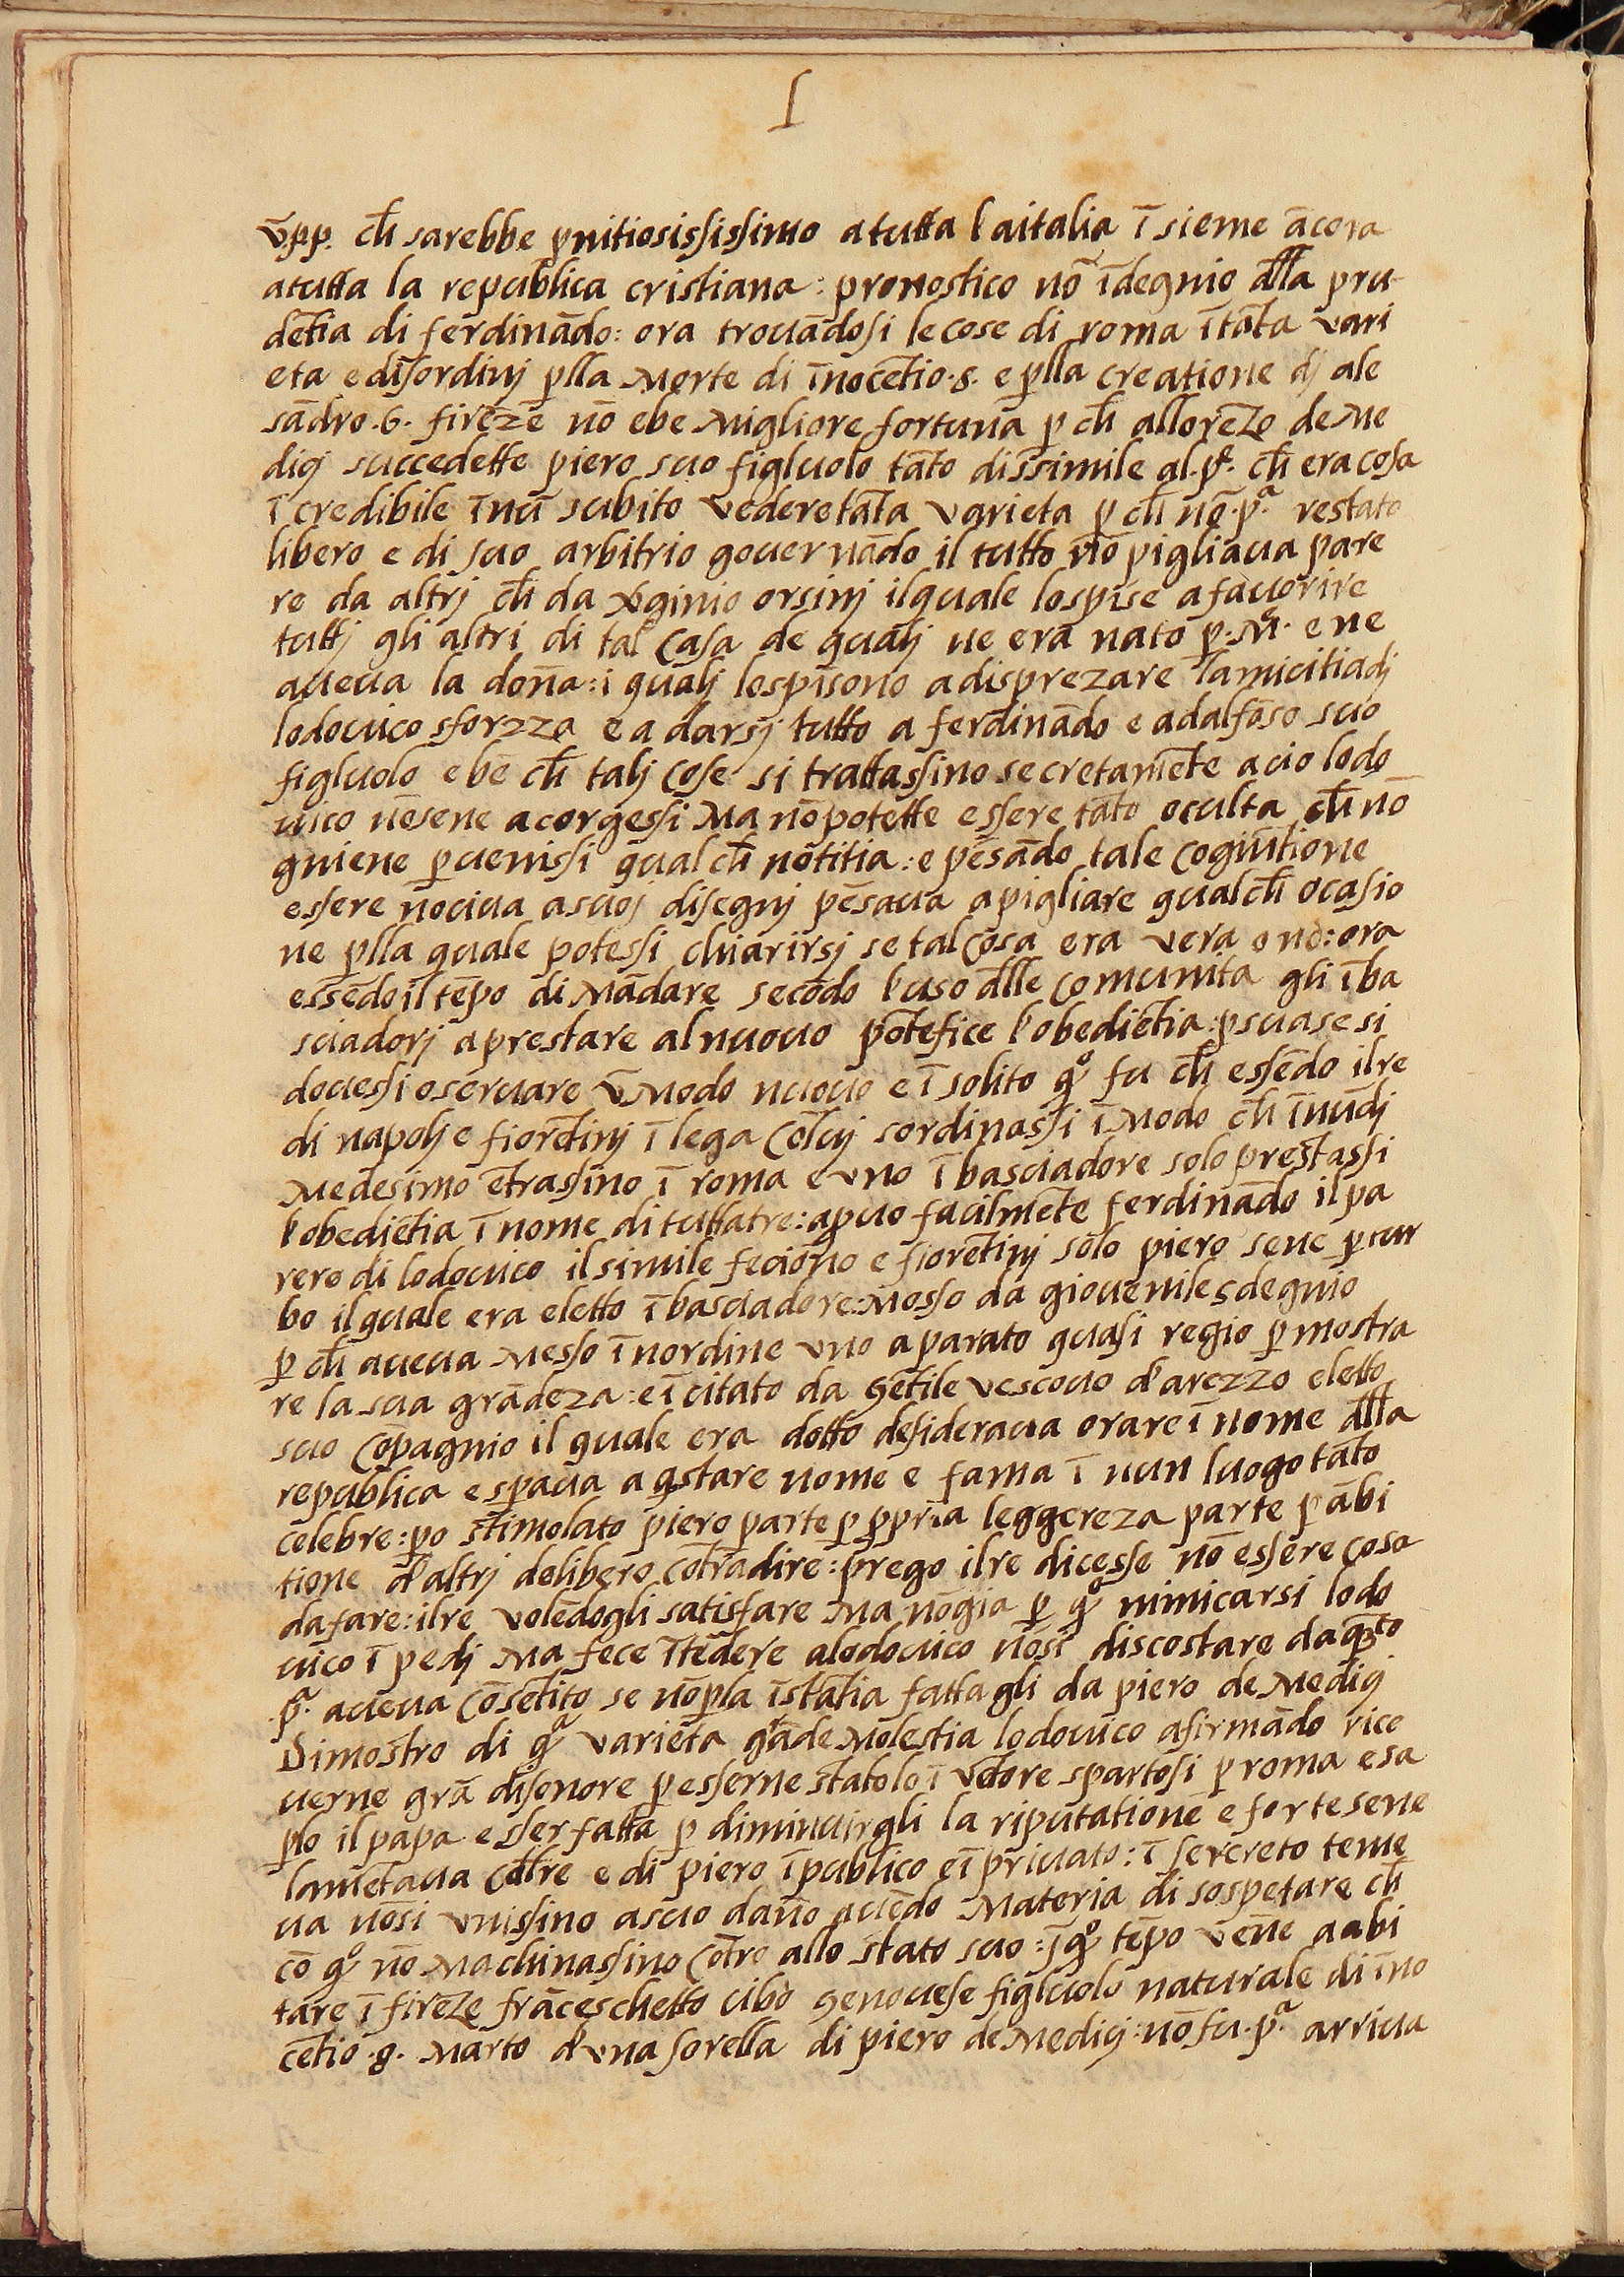 I
ṽ pp. cħ sarebbe ꝑnitiosississimo atutta l'aitalia ĩsieme ãcora
atutta la republica cristiana: pronostico nõ ĩdegnio dlla pru-
dẽtia di ferdinãdo: ora trouãdosi lecose di roma ĩtãta vari
eta e disordinj ꝑlla Morte di ĩnocẽtio .8. e ꝑlla creatione dj ale
sãdro .6. firẽze nõ ebe Migliore fortuna ꝑ cħ allorẽzo de Me
dicj succedette piero suo figluolo tãto dissimile al .pͤ. cħ era cosa
ĩcredibile ĩnũ subito vedere tãta varieta ꝑ cħ nõ .pᵃ. restato
libero e di suo arbitrio gouernãdo il tutto nõ pigliaua pare
re da altrj cħ da v̾ginio orsinj ilquale lospĩse a fauorire
tuttj gli altri di tal casa de qualj ne era nato ꝑ .Mᵉ. e ne
aueua la dõna: i qualj lospĩsono adisprezare lamicitia dj
lodouico sforzza e a darsj tutto a ferdinãdo e adalfõso suo
figluolo e bẽ cħ talj cose si trattassino secretamẽte acio lodo
uico nõsene acorgessi Ma nõ potette essere tãto oculta cħ nõ
gniene ꝑuenissi qual cħ nõtitia: e pẽsãdo tale cogiũtione
essere nociua asuoj disegnj pẽsaua apigliare qualcħ ocasio
ne ꝑlla quale potessi chiarirsj se tal cosa era vera o nò: ora
essẽdo il tẽpo di Mãdare secõdo l'uso dlle comunita gli ĩba
sciadorj aprestare al nuouo põtefice l'obediẽtia: ꝑsuase si
douessi oseruare ũ Modo nuouo e ĩsolito qᵒ fu cħ essẽdo il re
di napolj e fiorẽtinj ĩ lega cõluj sordinassi ĩ Modo cħ ĩnũ dj
Medesimo ẽtrassino ĩ roma e vno ĩbasciadore solo prestassi
l'obediẽtia ĩ nome di tuttatre: apuo facilmẽte ferdinãdo il pa
rere di lodouico il simile feciõno e fiorẽtinj solo piero sene ꝑtur
bo ilquale era eletto ĩbasciadore: Mosso da giouenile sdegnio
ꝑ cħ aueua Messo ĩnordine vno aparato quasi regio ꝑ mostra
re la sua grãdeza: e ĩcitato da gẽtile vescouo d'arezzo eletto
suo cõpagnio il quale era dotto desideraua orare ĩ nome dlla
republica e sꝑaua aqstare nome e fama ĩ nun luogo tãto
celebre: ꝑo stimolato piero parte ꝑ ꝓpria leggereza parte ꝑ ãbi
tione d'altrj delibero cõtradire: prego il re dicesse nõ essere cosa
da fare: il re volẽdogli satisfare Ma nõ gia ꝑ qᵒ nimicarsi lodo
uico ĩ pedj Ma fece ĩtẽdere alodouico nõ si discostare da qᵃto
.pᵃ. aueua cõsẽtito se nõ ꝑla ĩstãtia fatta gli da piero de Medicj
Dimostro di qᵃ varieta grãde Molestia lodouico afirmãdo rice
uerne grã disonore ꝑ esserne stato lo ĩvẽtore spartosi ꝑ roma e sa
ꝑlo il papa esser fatta ꝑ diminuirgli la riputatione e forte sene
lamẽtaua cõlre e di piero ĩ publico e ĩ priuato: ĩ sercreto teme
ua nõ si vnissino asuo dãno auẽdo Materia di sospetare cħ
cõ qᵒ nõ Machinassino cõtro allo stato suo: ĩ qᵒ tẽpo vẽne aabi
tare ĩ firẽze frãceschetto cibò genouese figluolo naturale di ĩno
cẽtio .8. Marto d'vna sorella di piero de Medicj: nõ fu .pᵃ. arriua